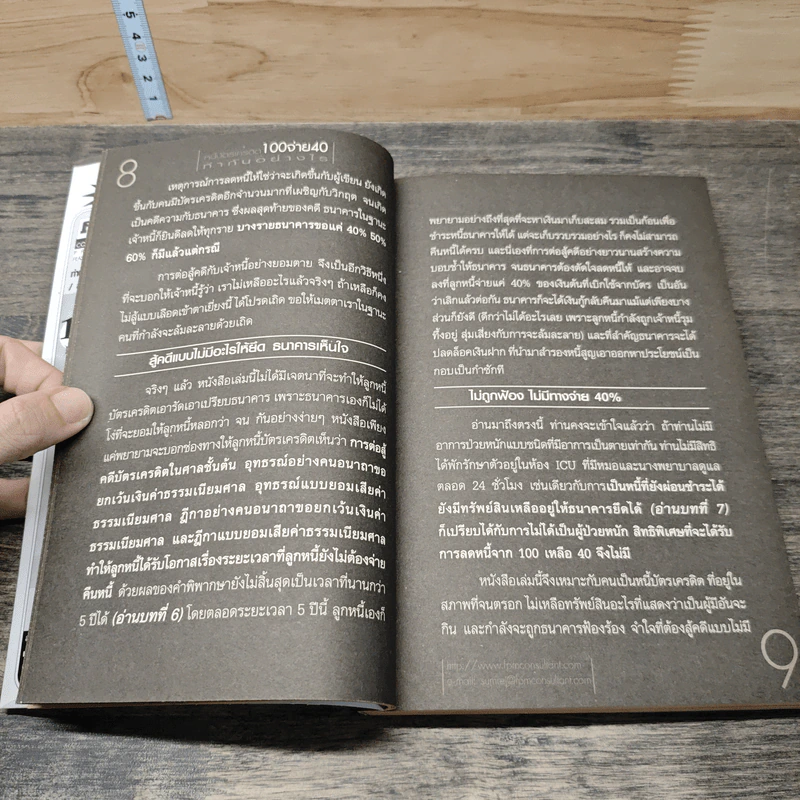 5
4
3
2
1
8
100จ่าย40
ทำกันอย่างไร
เหตุการณ์การลดหนี้ให้ใช่ว่าจะเกิดขึ้นกับผู้เขียน ยังเกิด
ขึ้นกับคนมีบัตรเครดิตอีกจำนวนมากที่เผชิญกับวิกฤต จนเกิด
เป็นคดีความกับธนาคาร ซึ่งผลสุดท้ายของคดี ธนาคารในฐานะ
เจ้าหนี้ก็ยินดีลดให้ทุกราย บางรายธนาคารขอแค่ 40% 50%
60% ก็มีแล้วแต่กรณี
การต่อสู้คดีกับเจ้าหนี้อย่างยอมตาย จึงเป็นอีกวิธีหนึ่ง
ที่จะบอกให้เจ้าหนี้รู้ว่า เราไม่เหลืออะไรแล้วจริงๆ ถ้าเหลือก็คง
ไม่สู้แบบเลือดเข้าตาเยี่ยงนี้ ได้โปรดเถิด ขอให้เมตตาเราในฐานะ
คนที่กำลังจะล้มละลายด้วยเถิด
สู้คดีแบบไม่มีอะไรให้ยึด ธนาคารเห็นใจ
จริงๆ แล้ว หนังสือเล่มนี้ไม่ได้มีเจตนาที่จะทำให้ลูกหนี้
บัตรเครดิตเอารัดเอาเปรียบธนาคาร เพราะธนาคารเองก็ไม่ได้
โง่ที่จะยอมให้ลูกหนี้หลอกว่า จน กันอย่างง่ายๆ หนังสือเพียง
แค่พยายามจะบอกช่องทางให้ลูกหนี้บัตรเครดิตเห็นว่า การต่อสู้
คดีบัตรเครดิตในศาลชั้นต้น อุทธรณ์อย่างคนอนาถาขอ
ยกเว้นเงินค่าธรรมเนียมศาล อุทธรณ์แบบยอมเสียค่า
ธรรมเนียมศาล ฎีกาอย่างคนอนาถาขอยกเว้นเงินค่า
ธรรมเนียมศาล และฎีกาแบบยอมเสียค่าธรรมเนียมศาล
ทำให้ลูกหนี้ได้รับโอกาสเรื่องระยะเวลาที่ลูกหนี้ยังไม่ต้องจ่าย
คืนหนี้ ด้วยผลของคำพิพากษายังไม่สิ้นสุดเป็นเวลาที่นานกว่า
5 ปีได้ (อ่านบทที่ 6) โดยตลอดระยะเวลา 5 ปีนี้ ลูกหนี้เองก็
พยายามอย่างถึงที่สุดที่จะหาเงินมาเก็บสะสม รวมเป็นก้อนเพื่อ
ชำระหนี้ธนาคารให้ได้ แต่จะเก็บรวบรวมอย่างไร ก็คงไม่สามารถ
คืนหนี้ได้ครบ และนี่เองที่การต่อสู้คดีอย่างยาวนานสร้างความ
บอบช้ำให้ธนาคาร จนธนาคารต้องตัดใจลดหนี้ให้ และอาจจบ
ลงที่ลูกหนี้จ่ายแค่ 40% ของเงินต้นที่เบิกใช้จากบัตร เป็นอัน
ว่าเลิกแล้วต่อกัน ธนาคารก็จะได้เงินกู้กลับคืนมาแม้แต่เพียงบาง
ส่วนก็ยังดี (ดีกว่าไม่ได้อะไรเลย เพราะลูกหนี้กำลังถูกเจ้าหนี้รุม
ทึ้งอยู่ สุ่มเสี่ยงกับการจะล้มละลาย) และที่สำคัญธนาคารจะได้
ปลดล็อคเงินฝาก ที่นำมาสำรองหนี้สูญเอาออกหาประโยชน์เป็น
กอบเป็นกำซักที
ไม่ถูกฟ้อง ไม่มีทางจ่าย 40%
อ่านมาถึงตรงนี้ ท่านคงจะเข้าใจแล้วว่า ถ้าท่านไม่มี
อาการป่วยหนักแบบชนิดที่มีอาการเป็นตายเท่ากัน ท่านไม่มีสิทธิ
ได้พักรักษาตัวอยู่ในห้อง ICU ที่มีหมอและนางพยาบาลดูแล
ตลอด 24 ชั่วโมง เช่นเดียวกับการเป็นหนี้ที่ยังผ่อนชำระได้
ยังมีทรัพย์สินเหลืออยู่ให้ธนาคารยึดได้ (อ่านบทที่ 7)
ก็เปรียบได้กับการไม่ได้เป็นผู้ป่วยหนัก สิทธิพิเศษที่จะได้รับ
การลดหนี้จาก 100 เหลือ 40 จึงไม่มี
หนังสือเล่มนี้จึงเหมาะกับคนเป็นหนี้บัตรเครดิต ที่อยู่ใน
สภาพที่จนตรอก ไม่เหลือทรัพย์สินอะไรที่แสดงว่าเป็นผู้มีอันจะ
กิน และกำลังจะถูกธนาคารฟ้องร้อง จำใจที่ต้องสู้คดีแบบไม่มี
http://www.fpmconsultant.com
9